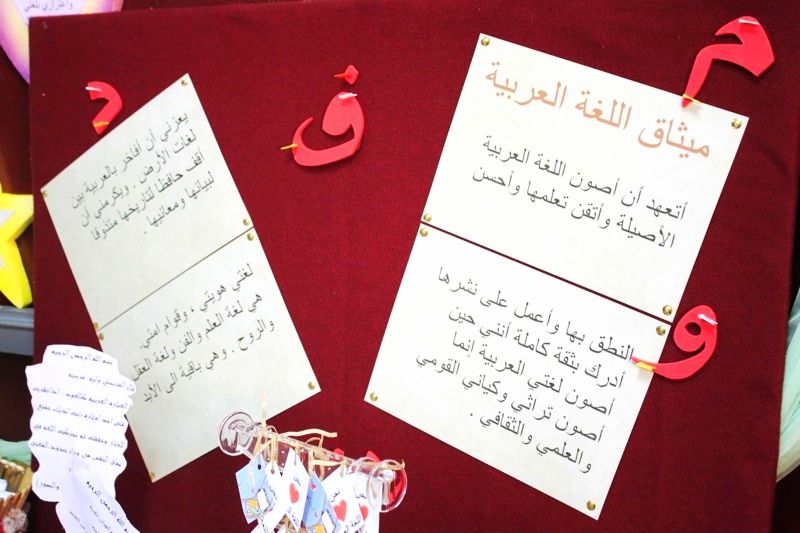 ميثاق اللغة العربية
أتعهد أن أصون اللغة العربية
الأصيلة وأتقن تعلمها وأحسن
النطق بها وأعمل على نشرها
أدرك بثقة كاملة أنني حين
أصون لغتي العربية إنما
أصون تراثي وكياني القومي
والعلمي والثقافي .
يعزني أن أفاخر بالعربية بين
لغات الأرض . ويكرمني أن
أقف حافظا لتاريخها متذوقا
لبيانها ومعانيها .
لغتي هويتي ، وقوام امتي.
هي لغة العلم والفن ولغة العقل
والروح . وهي باقية الى الأبد
م
ف
د
و
واعتزازي بلغتي
بسم الله الرحمن الرحيم